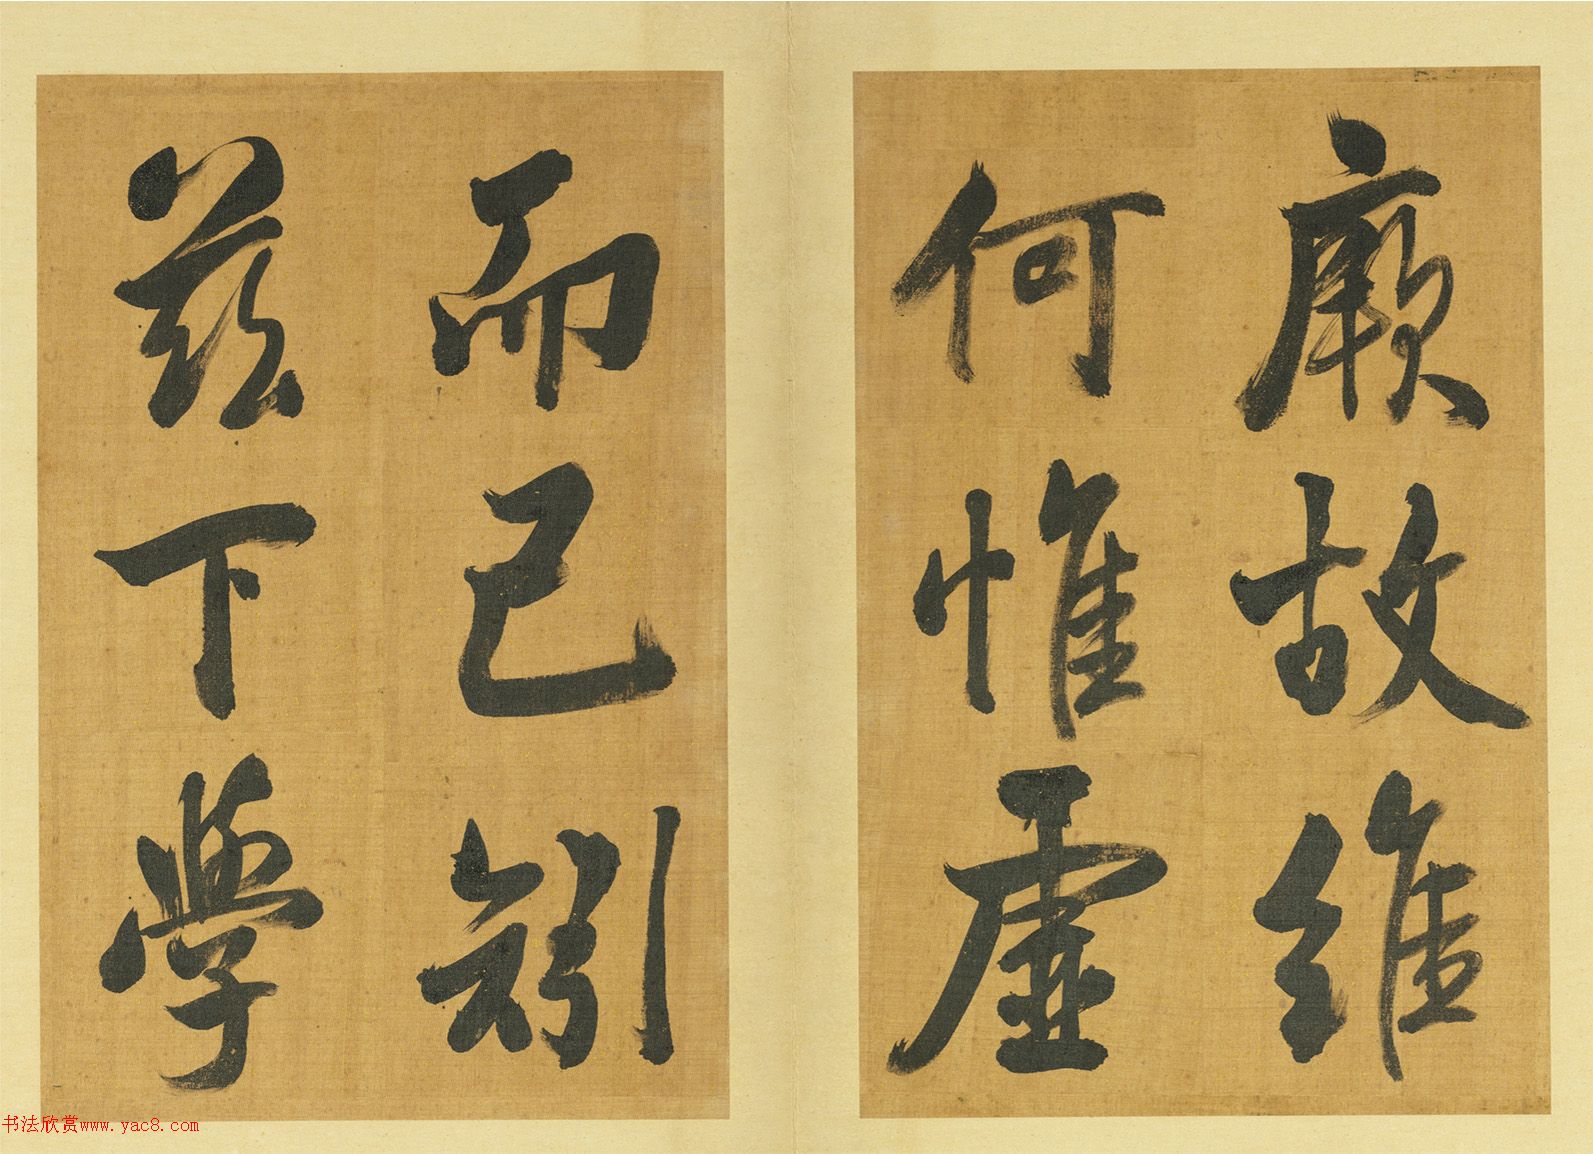 厥故維
何惟虛
而已矧
茲下學
书法欣赏www.yac8.com